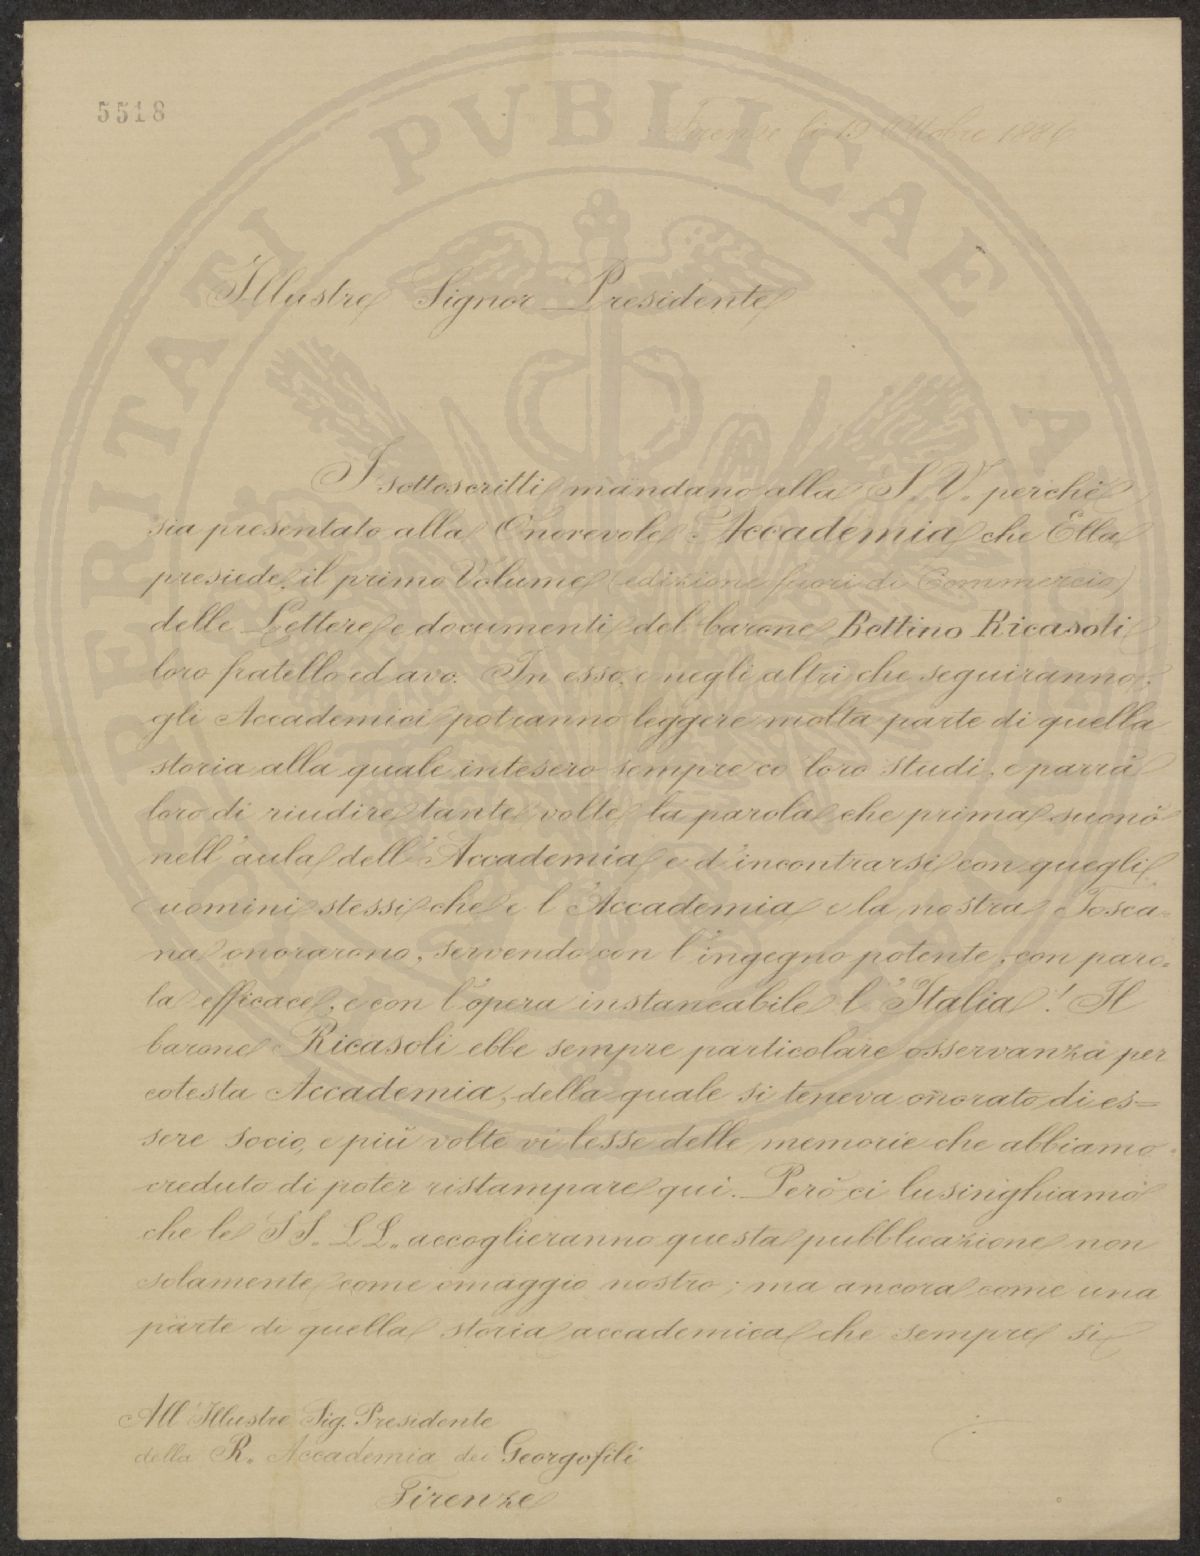 5518
Firenze li 19 Ottobre 1886
Illustre Signor Presidente
I sottoscritti mandano alla S. V. perchè
sia presentato alla Onorevole Accademia che Ella
presiede, il primo Volume (edizione fuori di Commercio)
delle Lettere e documenti del barone Bettino Ricasoli
loro fratello ed avo. In esso, e negli altri che seguiranno,
gli Accademici potranno leggere molta parte di quella
storia alla quale intesero sempre co loro studi, e parrà
loro di riudire tante volte la parola che prima suonò
nell'aula dell'Accademia e d'incontrarsi con quegli
uomini stessi che e l'Accademia e la nostra Tosca=
na onorarono, servendo con l'ingegno potente, con paro=
la efficace, e con l'opera instancabile l'Italia! Il
barone Ricasoli ebbe sempre particolare osservanza per
cotesta Accademia, della quale si teneva onorato di es=
sere socio, e più volte vi lesse delle memorie che abbiamo
creduto di poter ristampare qui. Però ci lusinghiamo
che le SS. LL. accoglieranno questa pubblicazione non
solamente come omaggio nostro; ma ancora come una
parte di quella storia accademica che sempre si
All'Illustre Sig. Presidente
della R. Accademia dei Georgofili
Firenze
PROSPERITATI PVBLICAE AVGENDAE